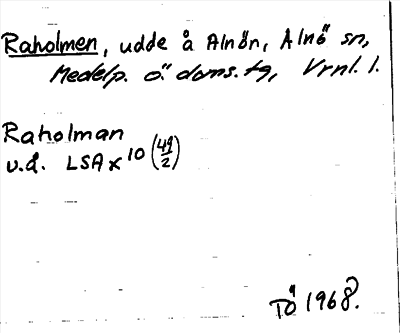 Raholmen, udde å Alnön, Alnö sn,
Medelp. ö. doms. tg, Vrnl. l.
Raholman
u.å. LSA X 10 (49/2)
TÖ 1968.